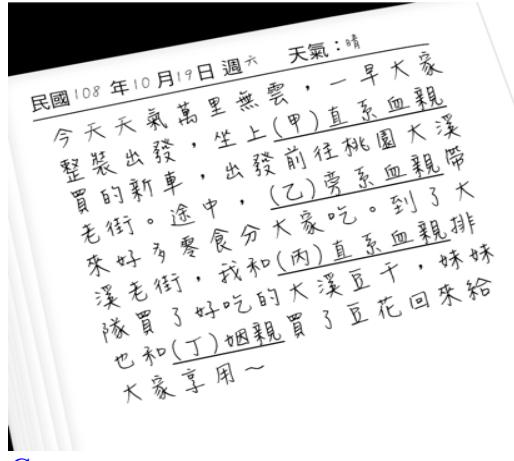 民國108年10月19日週六 天氣：晴
今天天氣萬里無雲，一早大家
整裝出發，坐上(甲)直系血親
買的新車，出發前往桃園大溪
老街。途中，(乙)旁系血親帶
來好多零食分大家吃。到了大
溪老街，我和(丙)直系血親排
隊買了好吃的大溪豆干，妹妹
也和(丁)姻親買了豆花回來給
大家享用～